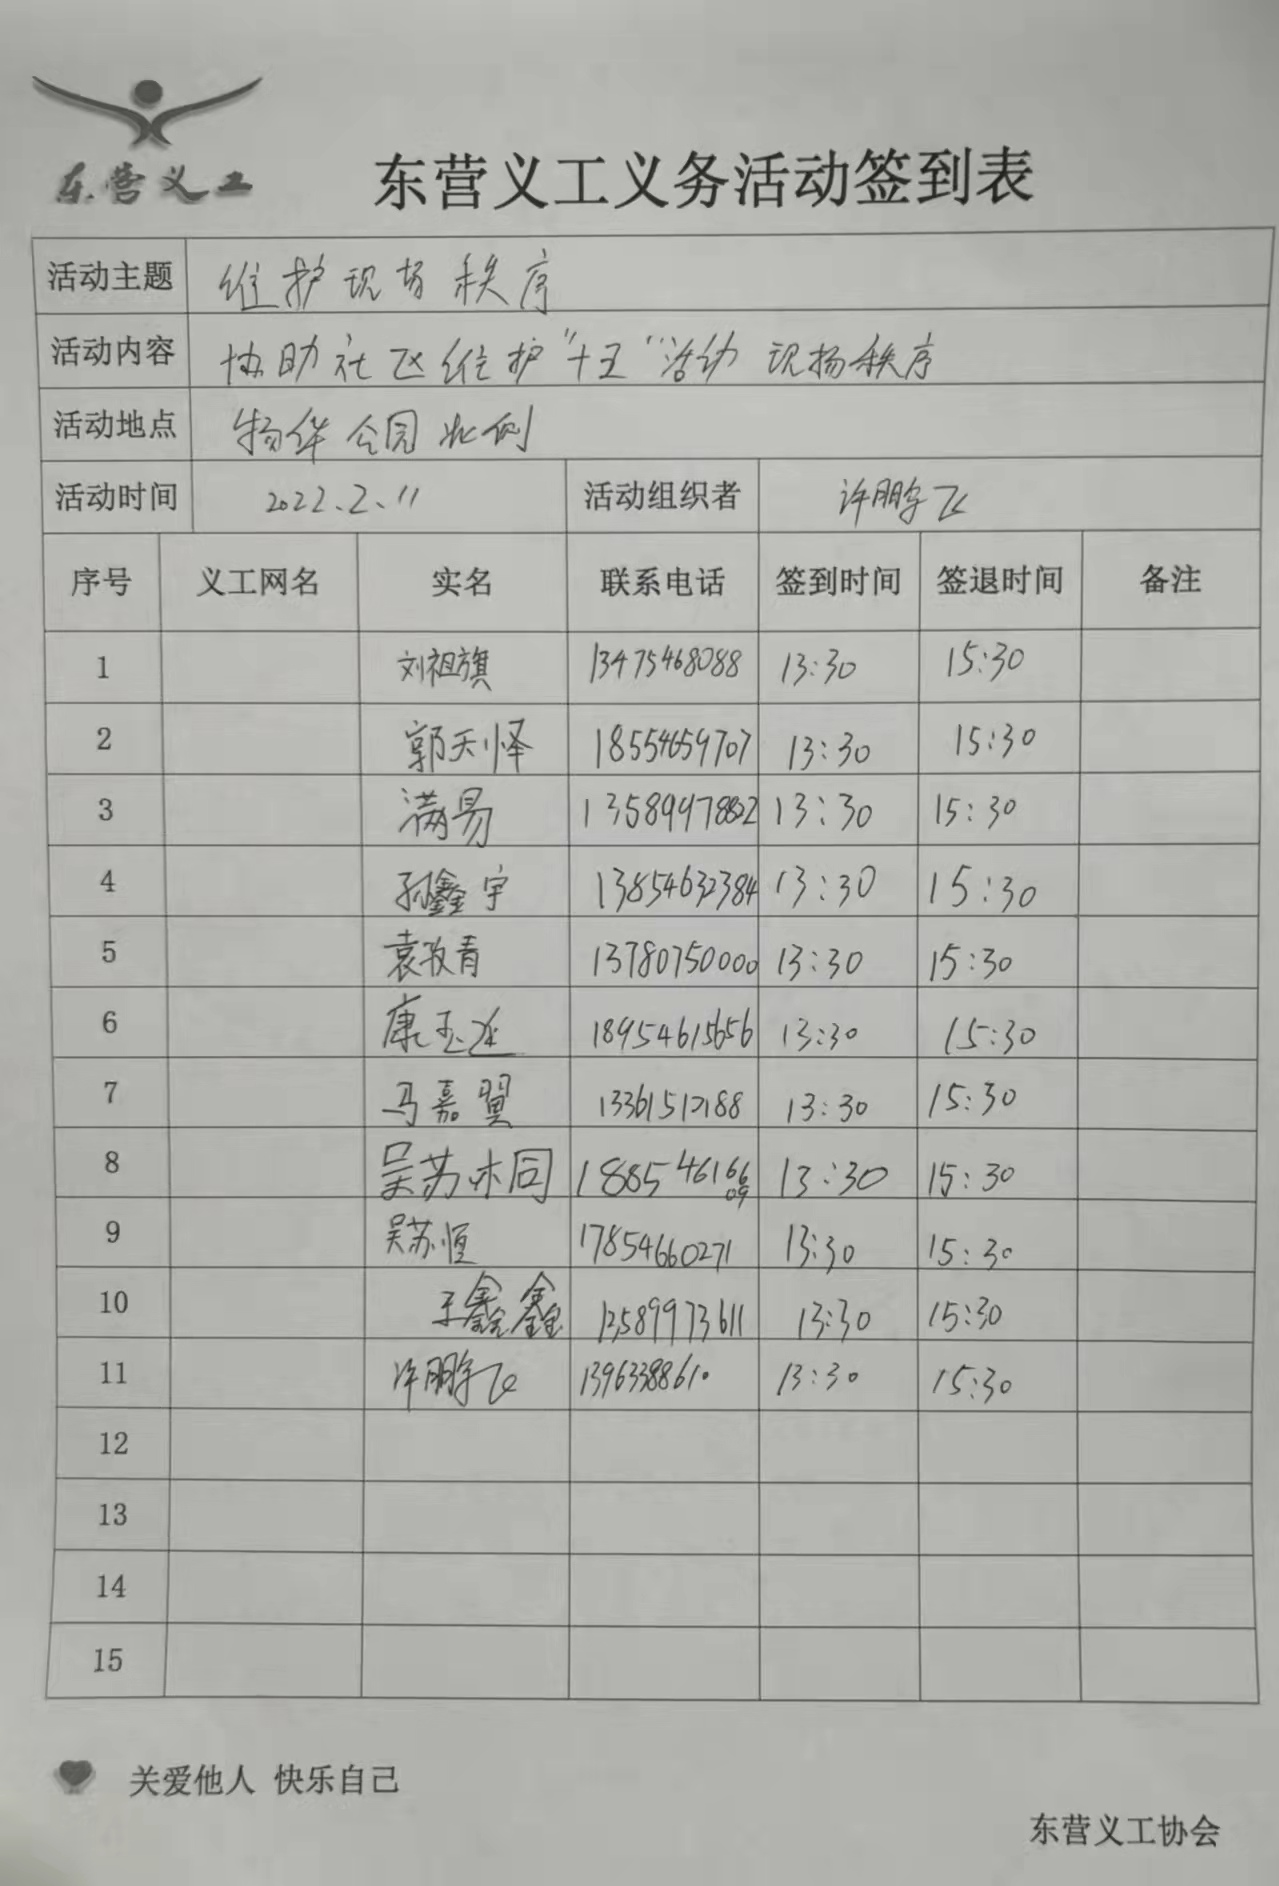 东营义工
东营义工义务活动签到表
活动主题 维护现场秩序
活动内容 协助社区维护“十五”活动 现场秩序
活动地点 物华公园北侧
活动时间 2022.2.11 活动组织者 许鹏宇飞
序号 义工网名 实名 联系电话 签到时间 签退时间 备注
1 刘祖旗 13475468088 13:30 15:30
2 郭天怿 18554659707 13:30 15:30
3 满易 13:30 15:30
4 孙鑫宇 13854632384 13:30 15:30
5 袁孜青 13780750000 13:30 15:30
6 康玉延 18954615656 13:30 15:30
7 马嘉翼 13:30 15:30
8 吴苏亦同 13:30 15:30
9 吴苏恒 17854660271 13:30 15:30
10 王鑫鑫 13589973611 13:30 15:30
11 许鹏宇飞 13963388610 13:30 15:30
12
13
14
15
关爱他人 快乐自己
东营义工协会